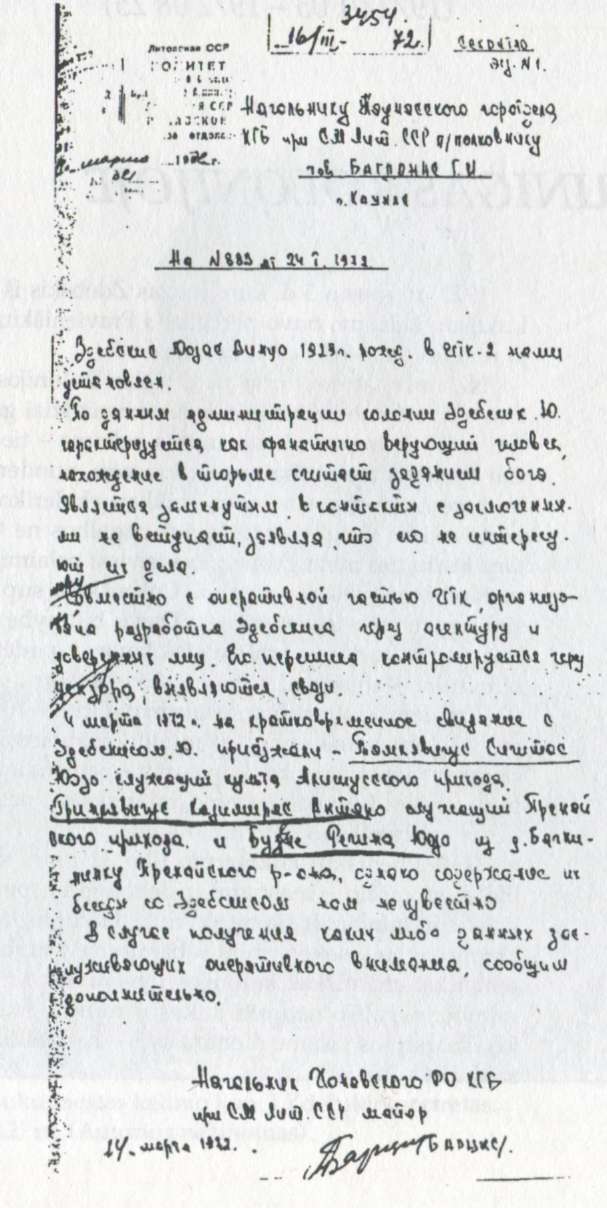 3454.
16/III- 72.
Секретно
экз. N1.
Литовская ССР
КОМИТЕТ
марта 1972 г.
Начальнику Каунасского горотдела
КГБ при СМ Лит. ССР п/полковнику
тов. Багронас Г.И.
г. Каунас
На N 889 от 24 I. 1972
Здебскис Юозас Винцо 1929 г. рожд. в ИТК-2 нами
установлен.
По данным администрации колонии Здебскис Ю.
характеризуется как фанатично верующий человек,
нахождение в тюрьме считает заданием бога.
Является замкнутым в контакты с заключенны-
ми не вступает, заявляя что его не интересу-
ют их дела.
Совместно с оперативной частью ИТК, организо-
вана разработка Здебскиса через агентуру и
доверенных лиц. Его переписка контролируется через
цензора, выявляются связи.
4 марта 1972 г. на кратковременное свидание с
Здебскисом Ю. приезжали Тамкявичус Сигитас
Юозо служащий культа Алитусского прихода,
Казимерас Антано служащий Пренай
ского прихода и Регина Юозо из д. Бачки-
нинку Пренайского р-она, однако содержание их
беседы со Здебскисом нам неизвестно
В случае получения каких либо данных зас-
луживающих оперативного внимания, сообщим
дополнительно.
Начальник РО КГБ
при СМ Лит. ССР майор
14. марта 1972.